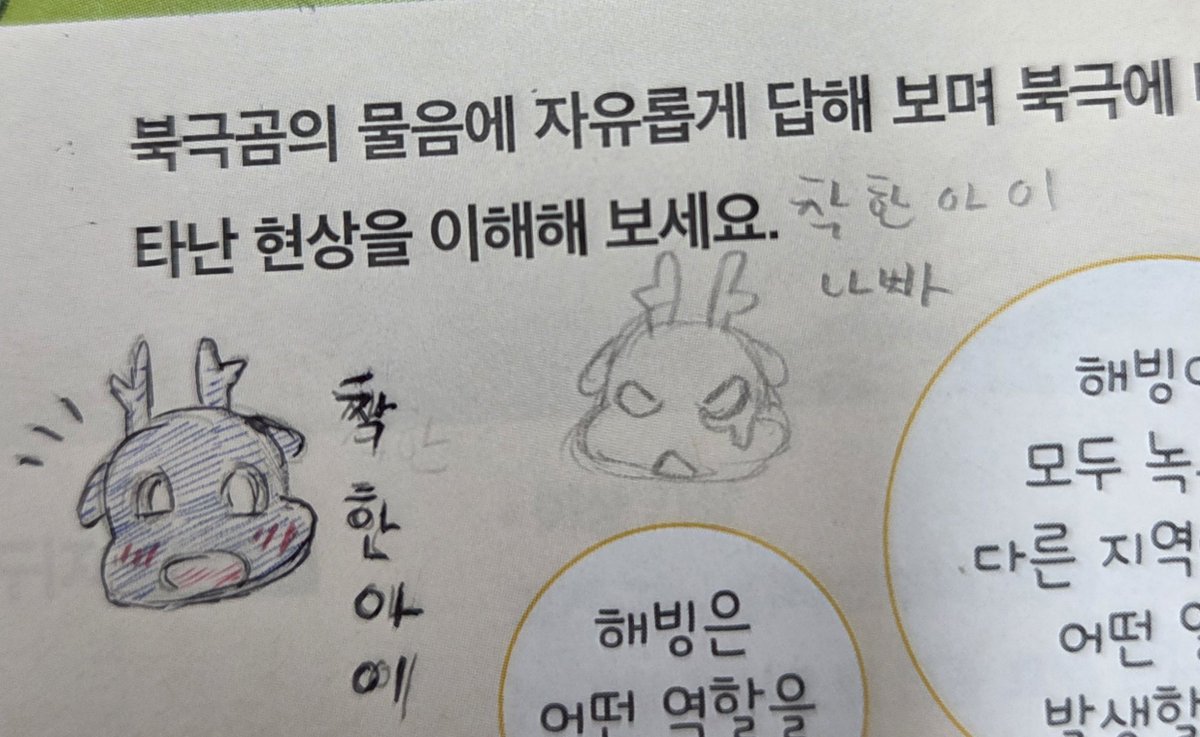 북극곰의 물음에 자유롭게 답해 보며 북극에
타난 현상을 이해해 보세요.
착한아이
나빠
착
한
아
이
해빙은
어떤 역할을
해빙이
모두 녹
다른 지역
어떤
발생할